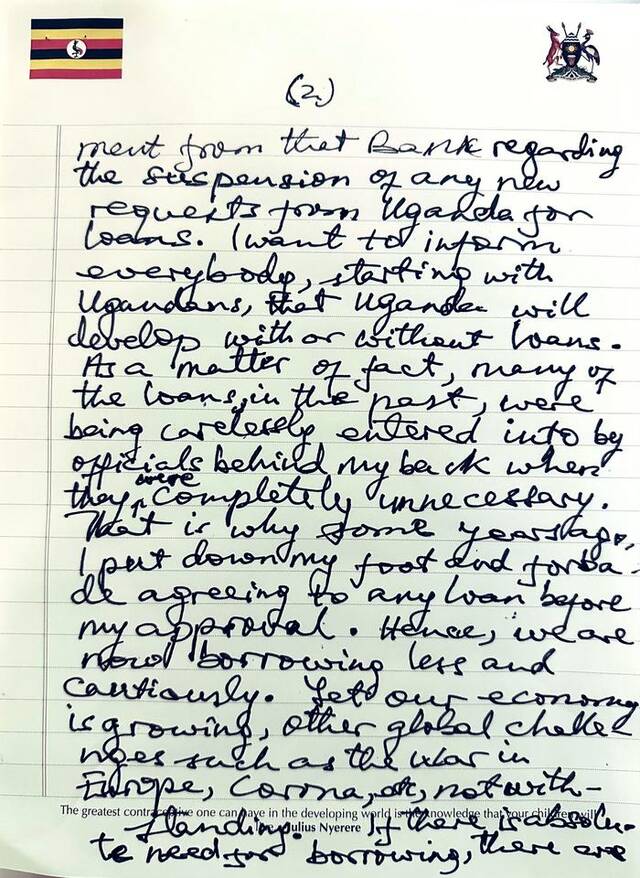 (2)
ment from that Bank regarding
the suspension of any new
requests from Uganda for
loans. I want to inform
everybody, starting with
Ugandans, that Uganda will
develop with or without loans.
As a matter of fact, many of
the loans, in the past, were
being carelessly entered into by
officials behind my back when
they were completely unnecessary.
That is why some years ago,
I put down my foot and forba-
de agreeing to any loan before
my approval. Hence, we are
now borrowing less and
cautiously. Yet our economy
is growing, other global challe-
nges such as the war in
Europe, Corona, etc, notwith-
The greatest contraceptive one can have in the developing world is the knowledge that your children will
standing. If there is absolu-
Julius Nyerere
te need for borrowing, there are